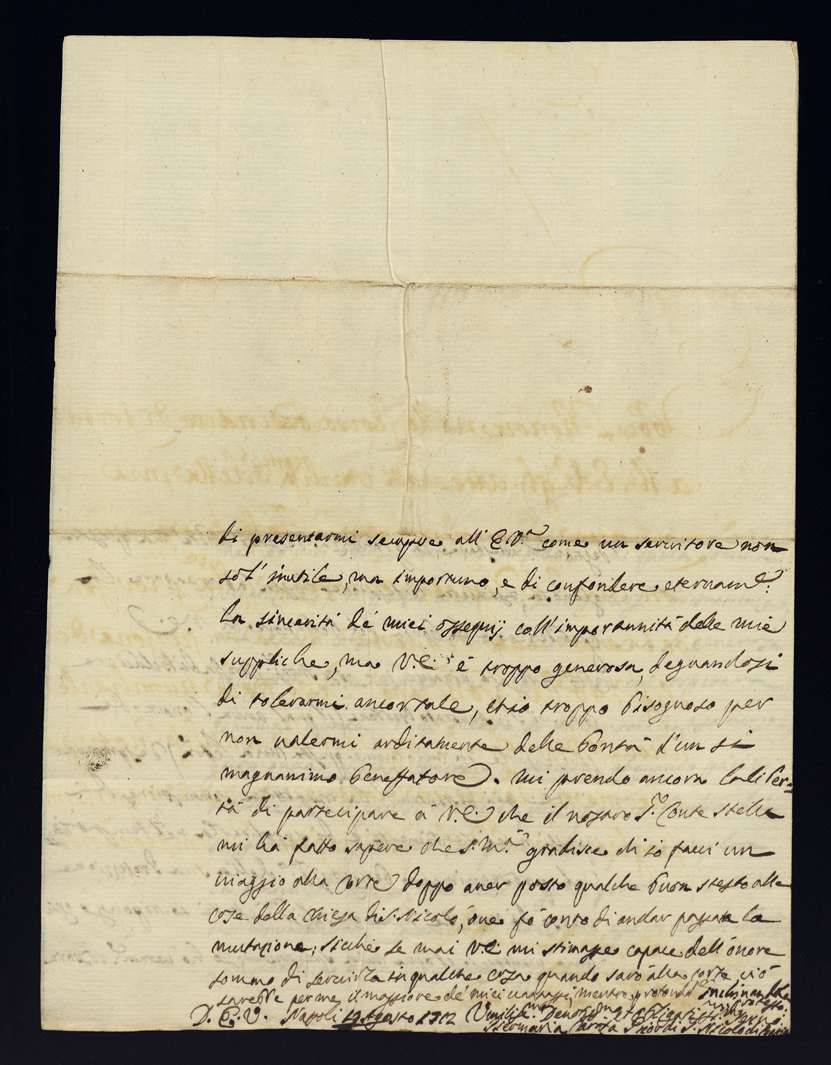 di presentarmi sempre all' E.V.ra come un servitore non
sol' inutile, ma importuno, e di confondere eternam.e
la sincerità de' miei ossequij coll' importunità delle mie
suppliche, ma V.E. è troppo generosa, degnandosi
di tolerarmi ancor tale, et io troppo bisognoso per
non valermi arditamente delle bontà d'un sì
magnanimo benefattore. Mi prendo ancora la liber-
tà di partecipare à V.E. che il nostro S.r Conte Stella
mi hà fatto sapere che S. M.tà gradisce ch' io facci un
viaggio alla Corte doppo aver posto qualche buon sesto alle
cose della Chiesa di S. Nicolò, ove fò conto di andar passata la
mutazione; sicche se mai V.E. mi stimasse capace dell' onore
sommo di servirla in qualche cosa quando sarò alla Corte, ciò
sarebbe per me il maggiore de' miei vantaggi, mentre profonda.te inchinandomi
mi protesto
D. E. V. Napoli 19 Agosto 1712 Umiliss.mo Devotiss.mo
S. Nicolò di Bari